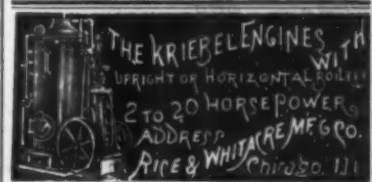 THE KRIEBEL ENGINES WITH
UPRIGHT OR HORIZONTAL BOILER
2 TO 20 HORSE POWER
ADDRESS
RICE & WHITACRE M'F'G CO.
Chicago Ill